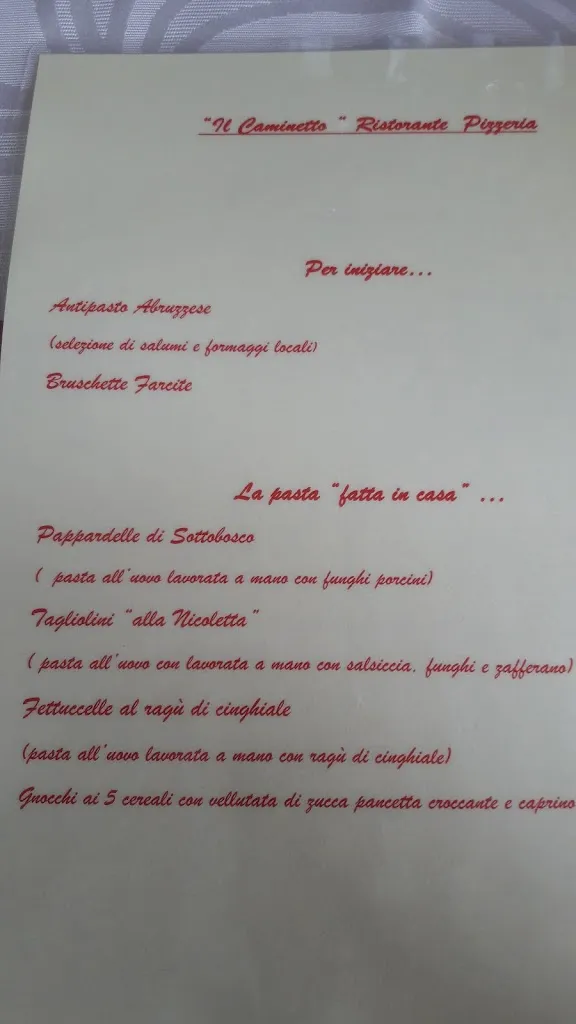 "Il Caminetto " Ristorante Pizzeria
Per iniziare...
Antipasto Abruzzese
(selezione di salumi e formaggi locali)
Bruschette Farcite
La pasta "fatta in casa" ...
Pappardelle di Sottobosco
( pasta all'uovo lavorata a mano con funghi porcini)
Tagliolini "alla Nicoletta"
( pasta all'uovo con lavorata a mano con salsiccia, funghi e zafferano)
Fettuccelle al ragù di cinghiale
(pasta all'uovo lavorata a mano con ragù di cinghiale)
Gnocchi ai 5 cereali con vellutata di zucca pancetta croccante e caprino